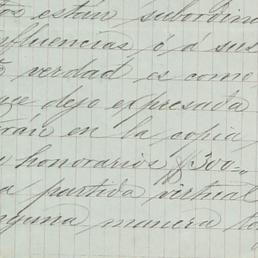 tos están subordina
nfluencias ó á sus
verdad es como
que dejo expresada
rán en la copia
honorarios $300=
a partida virtual
nguna manera to